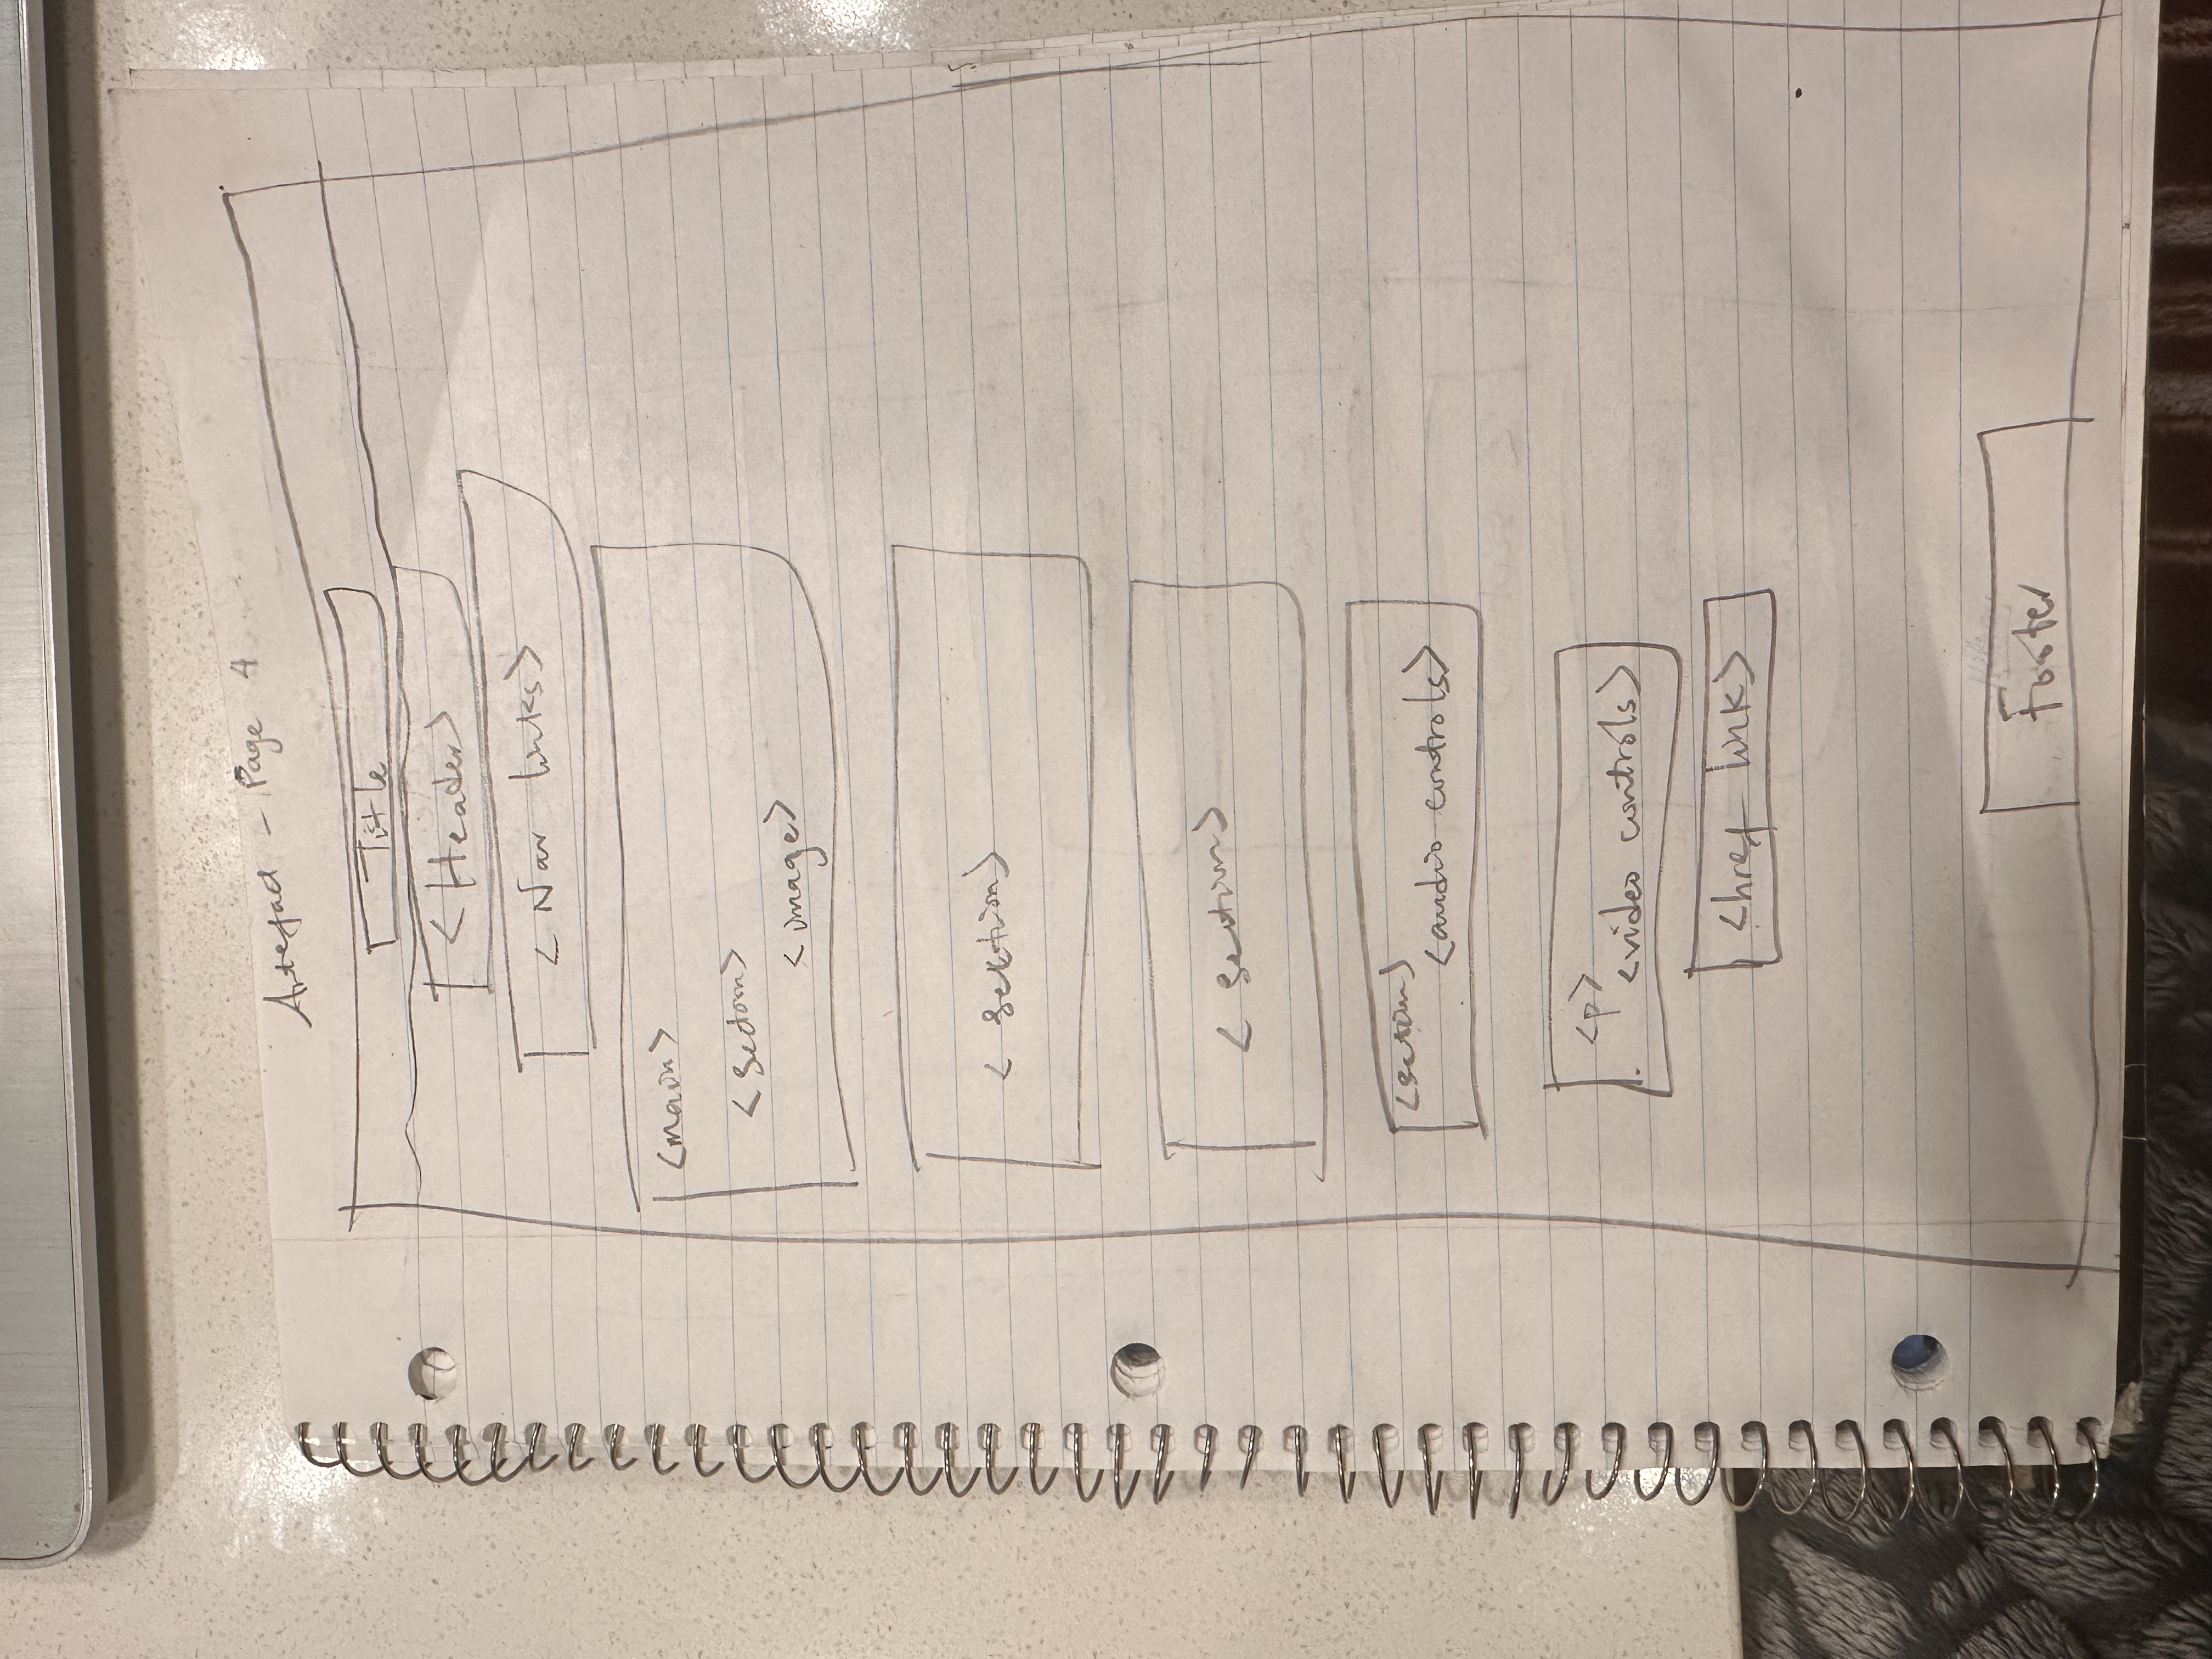 Artefact - Page 4
Title
<Header>
<Nav links>
<main>
<Section>
<image>
<Section>
<Section>
<section>
<audio controls>
<p>
<video controls>
<href link>
Footer